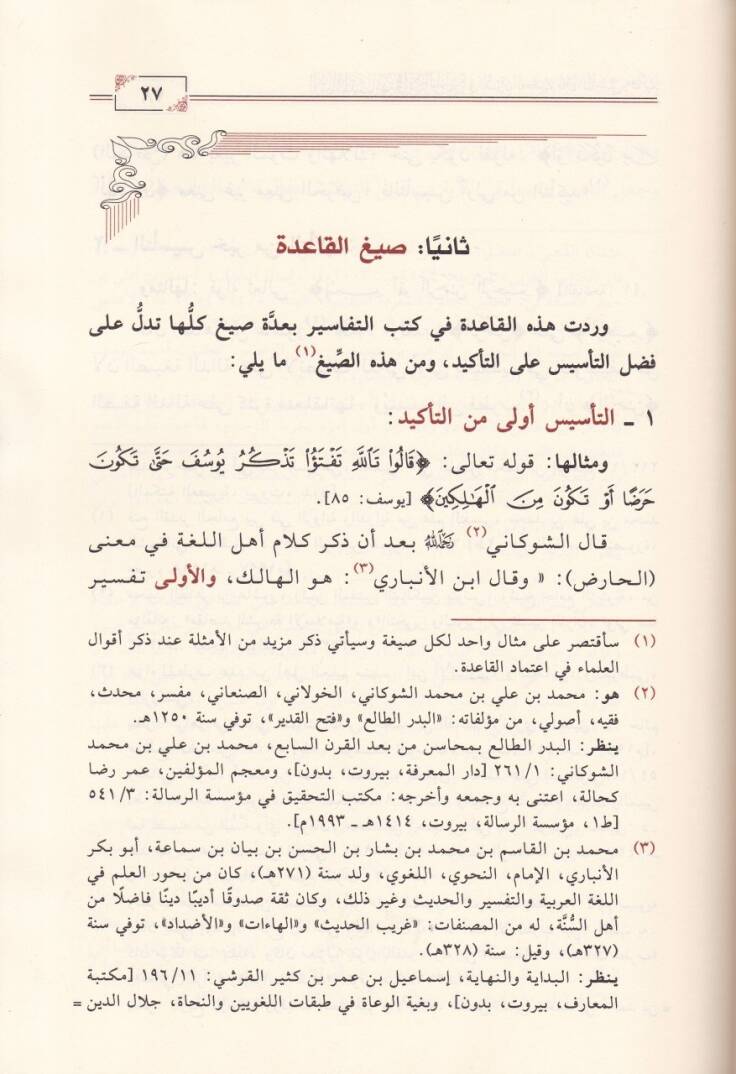 ٢٧
ثانيًا: صيغ القاعدة
وردت هذه القاعدة في كتب التفاسير بعدَّة صيغ كلُّها تدلُّ على
فضل التأسيس على التأكيد، ومن هذه الصِّيغ(١) ما يلي:
١ ـ التأسيس أولى من التأكيد:
ومثالها: قوله تعالى: ﴿قَالُوا۟ تَٱللَّهِ تَفْتَؤُا۟ تَذْكُرُ يُوسُفَ حَتَّىٰ تَكُونَ
حَرَضًا أَوْ تَكُونَ مِنَ ٱلْهَٰلِكِينَ﴾ [يوسف: ٨٥].
قال الشوكاني(٢) رَحِمَهُ اللَّهُ بعد أن ذكر كلام أهل اللغة في معنى
(الحارض): « وقال ابن الأنباري(٣): هو الهالك، والأولى تفسير
(١) سأقتصر على مثال واحد لكل صيغة وسيأتي ذكر مزيد من الأمثلة عند ذكر أقوال
العلماء في اعتماد القاعدة.
(٢) هو: محمد بن علي بن محمد الشوكاني، الخولاني، الصنعاني، مفسر، محدث،
فقيه، أصولي، من مؤلفاته: «البدر الطالع» و«فتح القدير»، توفي سنة ١٢٥٠هـ.
ينظر: البدر الطالع بمحاسن من بعد القرن السابع، محمد بن علي بن محمد
الشوكاني: ٢٦١/١ [دار المعرفة، بيروت، بدون]، ومعجم المؤلفين، عمر رضا
كحالة، اعتنى به وجمعه وأخرجه: مكتب التحقيق في مؤسسة الرسالة: ٥٤١/٣
[ط١، مؤسسة الرسالة، بيروت، ١٤١٤هـ ـ ١٩٩٣م].
(٣) محمد بن القاسم بن محمد بن بشار بن الحسن بن بيان بن سماعة، أبو بكر
الأنباري، الإمام، النحوي، اللغوي، ولد سنة (٢٧١هـ)، كان من بحور العلم في
اللغة العربية والتفسير والحديث وغير ذلك، وكان ثقة صدوقًا أديبًا دينًا فاضلًا من
أهل السُّنَّة، له من المصنفات: «غريب الحديث» و«الهاءات» و«الأضداد»، توفي سنة
(٣٢٧هـ)، وقيل: سنة (٣٢٨هـ).
ينظر: البداية والنهاية، إسماعيل بن عمر بن كثير القرشي: ١٩٦/١١ [مكتبة
المعارف، بيروت، بدون]، وبغية الوعاة في طبقات اللغويين والنحاة، جلال الدين =